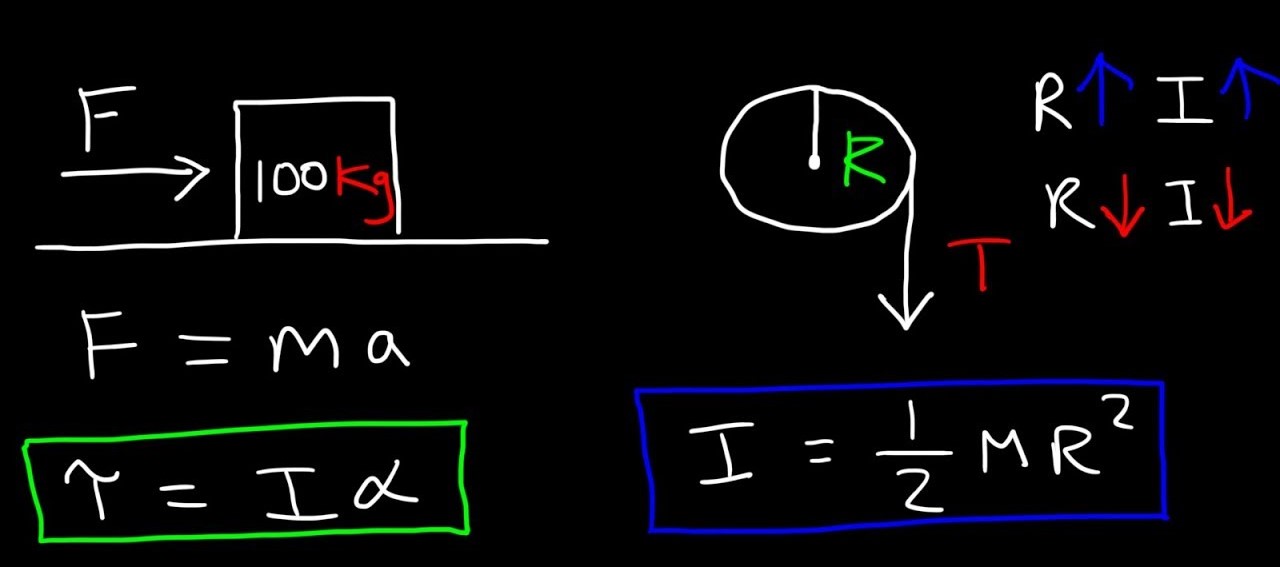 F
100Kg
F = ma
τ = Iα
R
T
R↑ I↑
R↓ I↓
I = 1/2 MR²